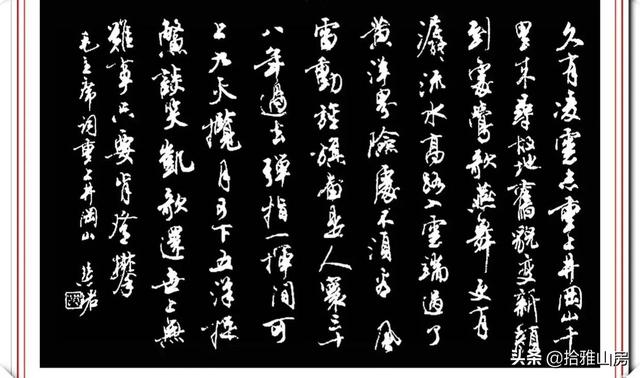 久有凌雲志重上井岡山千
里来尋故地舊貌變新顏
到處鶯歌燕舞更有
潺潺流水高路入雲端過了
黄洋界險處不須看風
雷動旌旗奮是人寰三十
八年過去彈指一揮間可
上九天攬月可下五洋捉
鱉談笑凱歌還世上無
難事只要肯登攀
毛主席詞重上井岡山
头条@拾雅山房